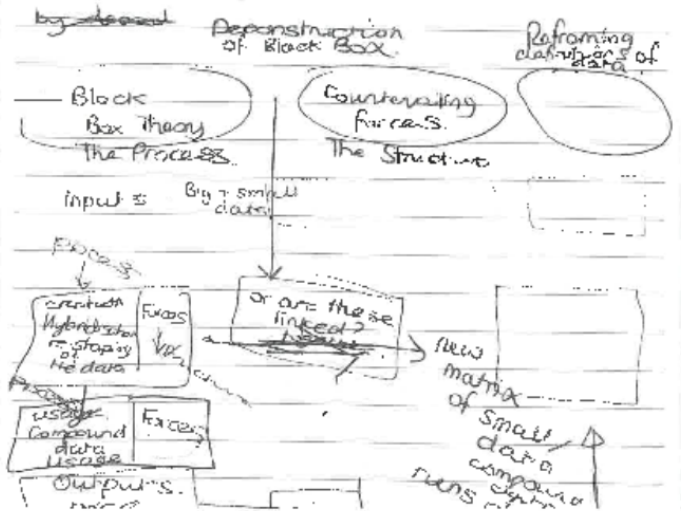 by
Deconstruction
of Black Box.
Reframing
definitions of
data
Black
Box Theory
Countervailing
forces.
The Process
The Structure
input =
Big + small
data
Process
Hybridisation
re-shaping
of
the data
Forces
or are these
linked?
new
matrix
of small
data
compound
Process
usage
Compound
data
usage
Forces?
Outputs.
runs